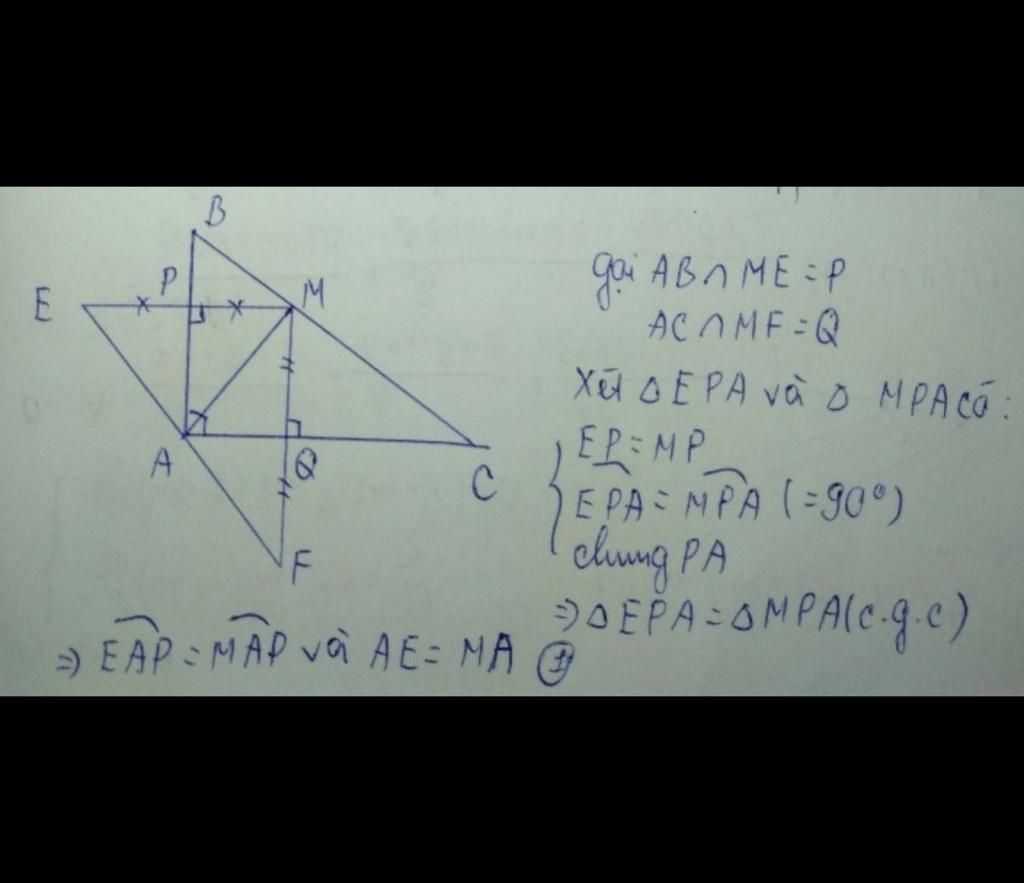 B
P
M
E
A
Q
C
F
gọi AB ∩ ME = P
AC ∩ MF = Q
Xét △ EPA và △ MPA có :
EP = MP
EPA = MPA ( = 90°)
chung PA
=> △ EPA = △ MPA (c.g.c)
=> EAP = MAP và AE = MA ①